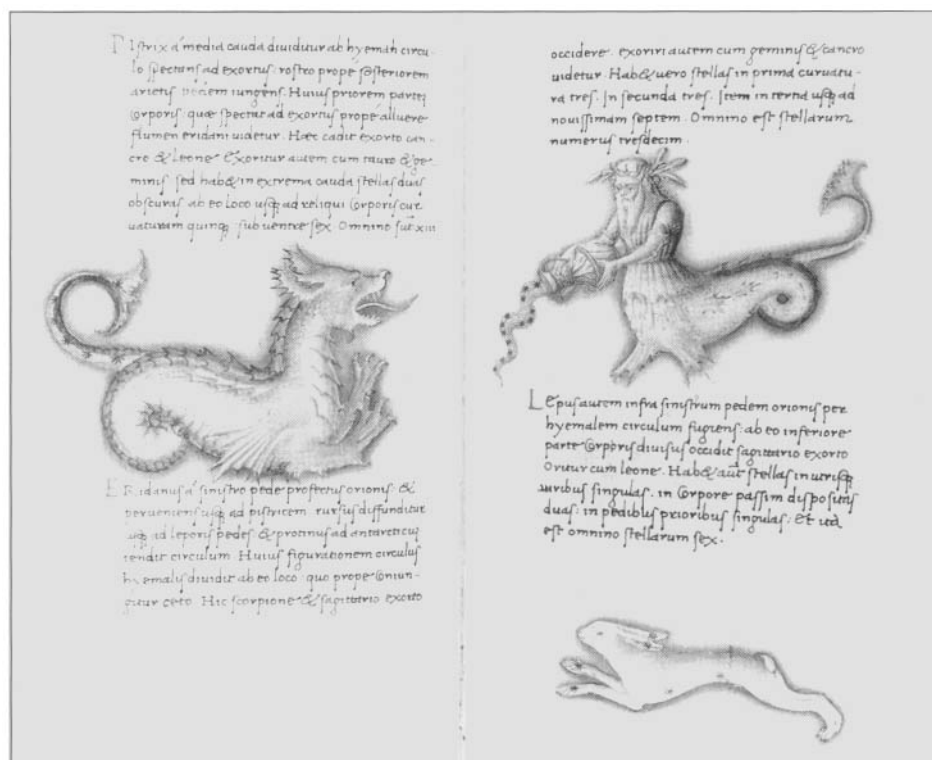 PIstrix a' media cauda diuiditur ab hyemali circu-
lo spectans ad exortus: rostro prope posteriorem
arietis pedem iungens. Huius priorem partem
Corporis. quæ spectat ad exortus prope alluere
flumen eridani uidetur. Hæc cadit exorto can-
cro & Leone Exoritur autem cum tauro & ge-
minis sed hab& in extrema cauda stellas duas
obscuras ab eo loco usq; ad reliqui Corporis cur
uaturam quinq; sub uentre sex. Omnino sut xiii
ERidanus a' sinistro pede profectus orionis. &
perueniens usq; ad pistricem. rursus diffunditur
usq; ad leporis pedes. & protinus ad antarcticu
tendit circulum. Huius figurationem circulus
hyemalis diuidit ab eo loco. quo prope Coniun-
gitur ceto. Hic scorpione & sagittario exorto
occidere. exoriri autem cum geminis & cancro
uidetur. Hab& uero stellas in prima curuatu-
ra tres. In secunda tres. Item in tertia usq; ad
nouissimam septem. Omnino est stellarum
numerus tresdecim.
LEpus autem infra sinistrum pedem orionis per
hyemalem circulum fugiens: ab eo inferiore
parte Corporis diuisus occidit sagittario exorto
Oritur cum leone. Hab& aut stellas in utrisq;
auribus singulas. in Corpore passim dispositas
duas: in pedibus prioribus singulas. Et ita
est omnino stellarum sex.